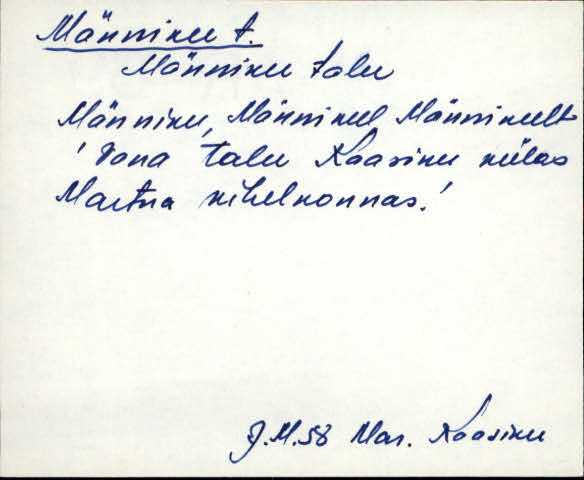 Männiku t.
Männiku talu
Männiku, Männikul Männikult
'Vana talu Kaasiku külas
Martna kihelkonnas.'
J.M.58 Mar. Kaasiku